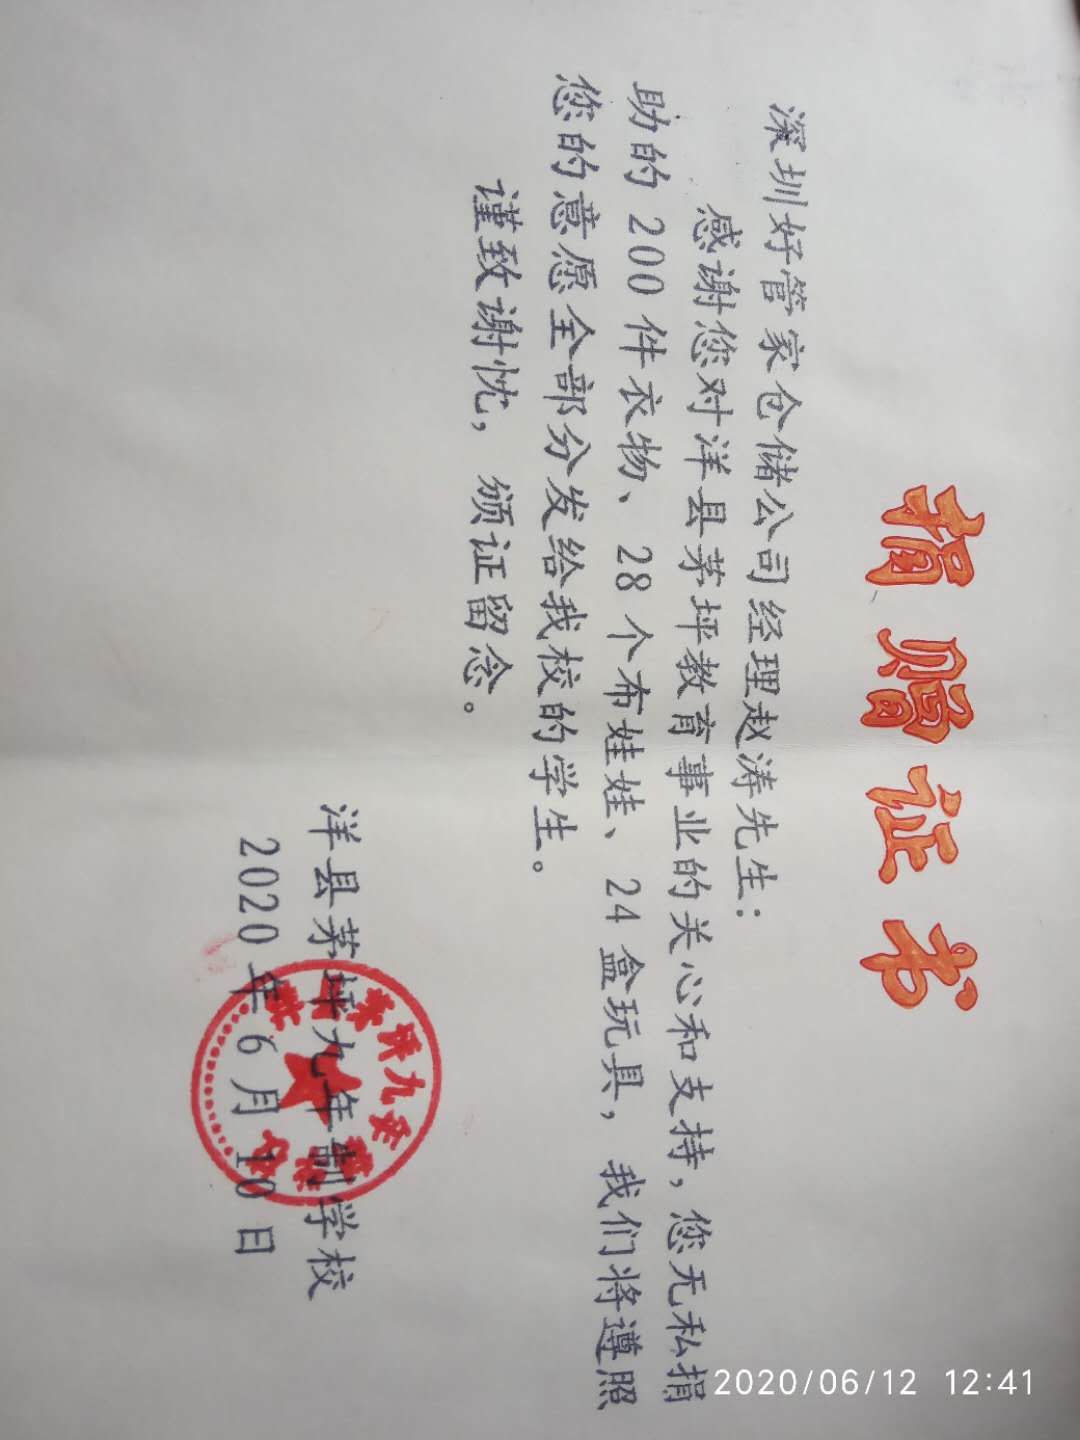 捐赠证书
深圳好管家仓储公司经理赵涛先生：
感谢您对洋县茅坪教育事业的关心和支持，您无私捐
助的 200 件衣物、28 个布娃娃、24 盒玩具，我们将遵照
您的意愿全部分发给我校的学生。
谨致谢忱，颁证留念。
洋县茅坪九年制学校
2020 年 6 月 10 日
2020/06/12 12:41